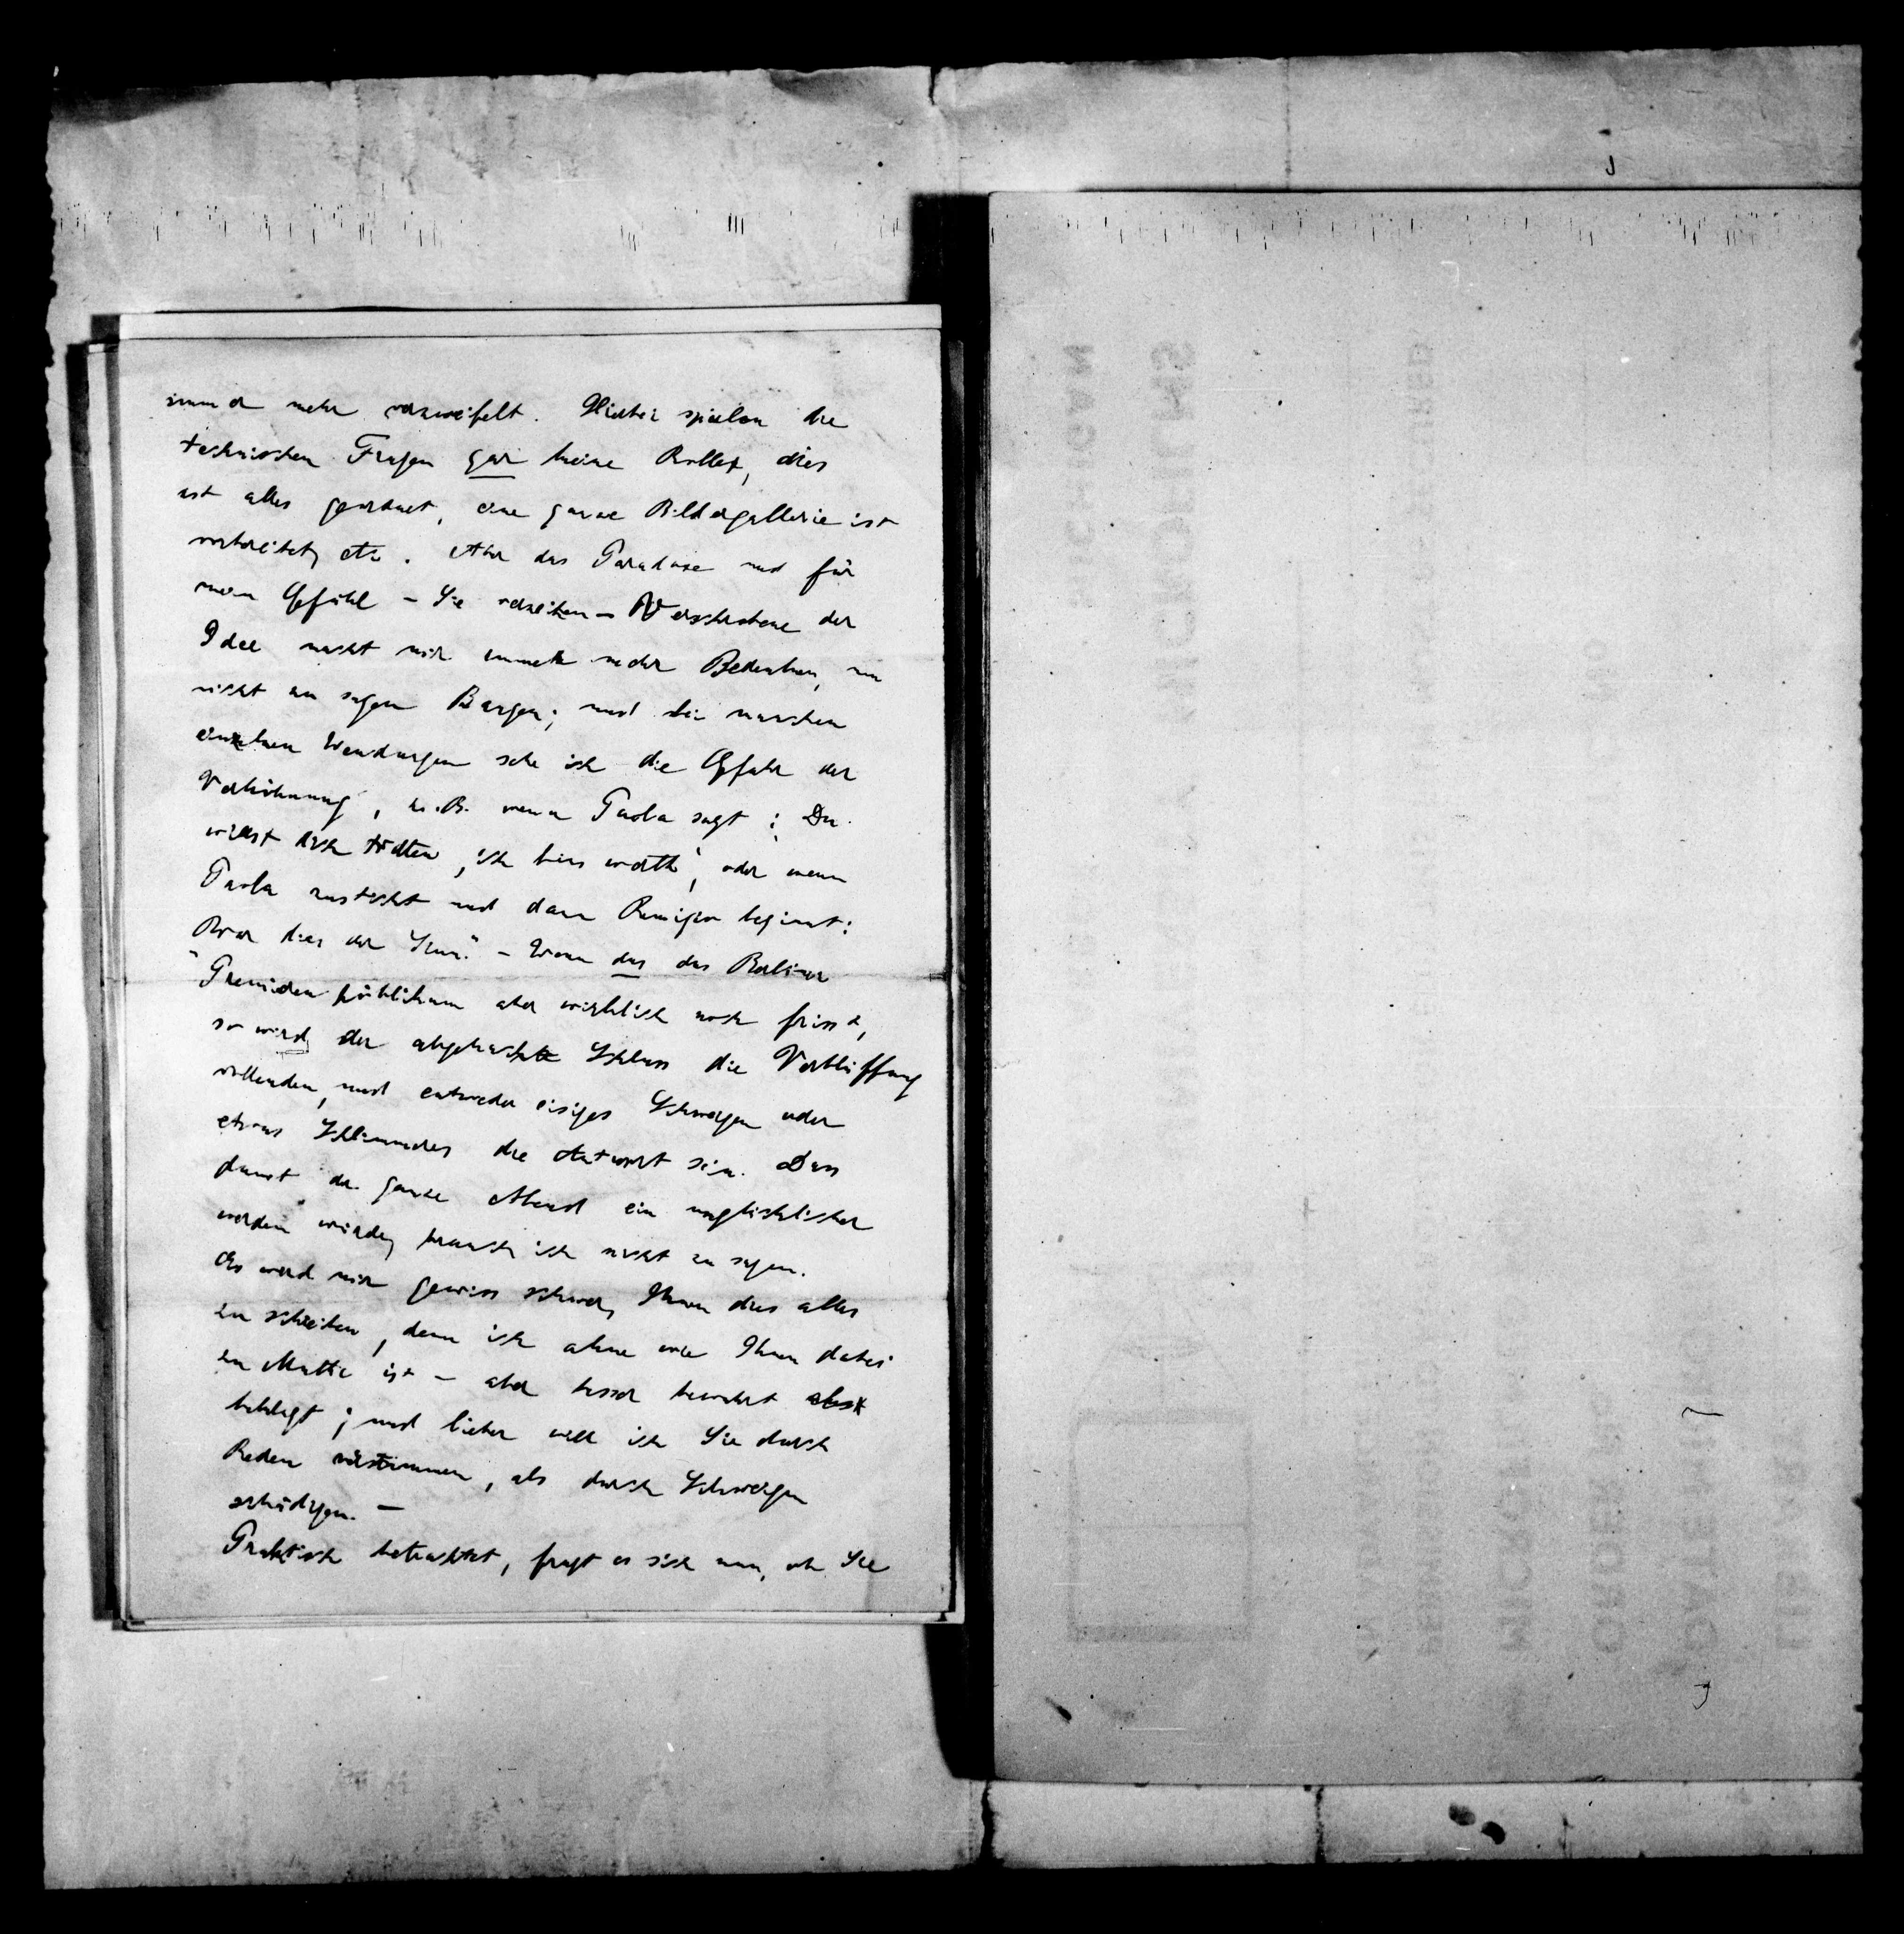 immer mehr verzweifelt. Hierbei spielen die
technischen Fragen gar keine Rolle, dies
ist alles geordnet, eine ganze Bildergallerie ist
vorbereitet, etc. Aber das Paradoxe und für
mein Gefühl – Sie verzeihen – Verschrobene der
Idee macht mir immer mehr Bedenken, um
nicht zu sagen Bangen; und bei manchen
einzelnen Wendungen sehe ich die Gefahr der
Verhöhnung, z.B. wenn Paola sagt: Du
willst dich tödten, ich bins werth', oder wenn
Paola zusticht und dann Remigio beginnt:
War dies der Sinn?" – Wenn das das Berliner
Premièrenpublikum aber wirklich noch frisst,
so wird der abgehackte Schluss die Verblüffung
vollenden, und entweder eisiges Schweigen oder
etwas Schlimmeres die Antwort sein. Dass
damit der ganze Abend ein unglücklicher
werden würde, brauch ich nicht zu sagen.
Es wird mir gewiss schwer, Ihnen dies alles
zu schreiben, denn ich ahne wie Ihnen dabei
zu Muthe ist – aber besser bewahrt als
beklagt; und lieber will ich Sie durch
Reden verstimmen, als durch Schweigen
schädigen. –
Praktisch betrachtet, fragt es sich nun, ob Sie